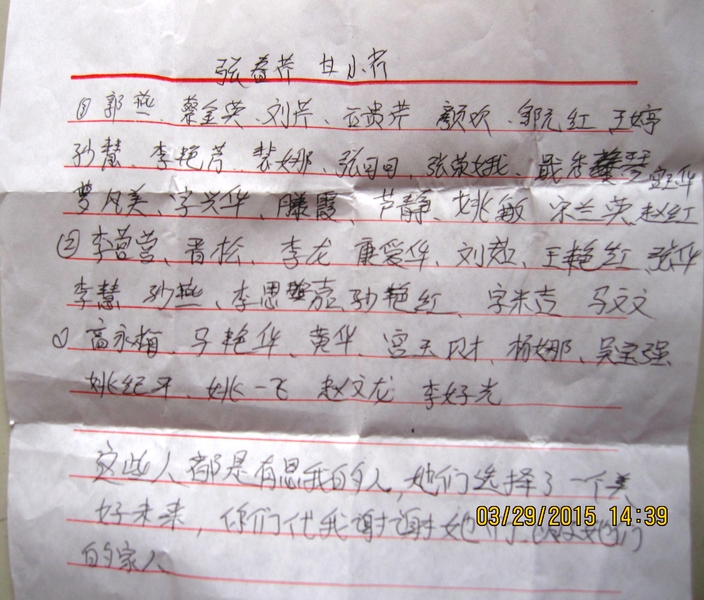 张春芹 甘小芹
③郭燕、蔡金英、刘芹、云贵芹 颜欢、邹元红 王婷
孙慧、李艳芳、裴娜、张日日、张荣娥、聂秀琴
宫玉华
贾凡美、字兴华、滕霞、芦静、姚敏 宋兰英 赵红
②李营营、晋松、李龙 康爱华、刘敏、王艳红 张华
李慧 孙燕、李思嘉 孙艳红、字朱吉 马文文
①高永梅、马艳华、黄华、宫天财、杨娜、吴宝强
姚纪平、姚一飞 赵文龙 李好光
这些人都是有恩我的人,她们选择了一个美
好未来,你们代我谢谢她们、她们
的家人
03/29/2015 14:39